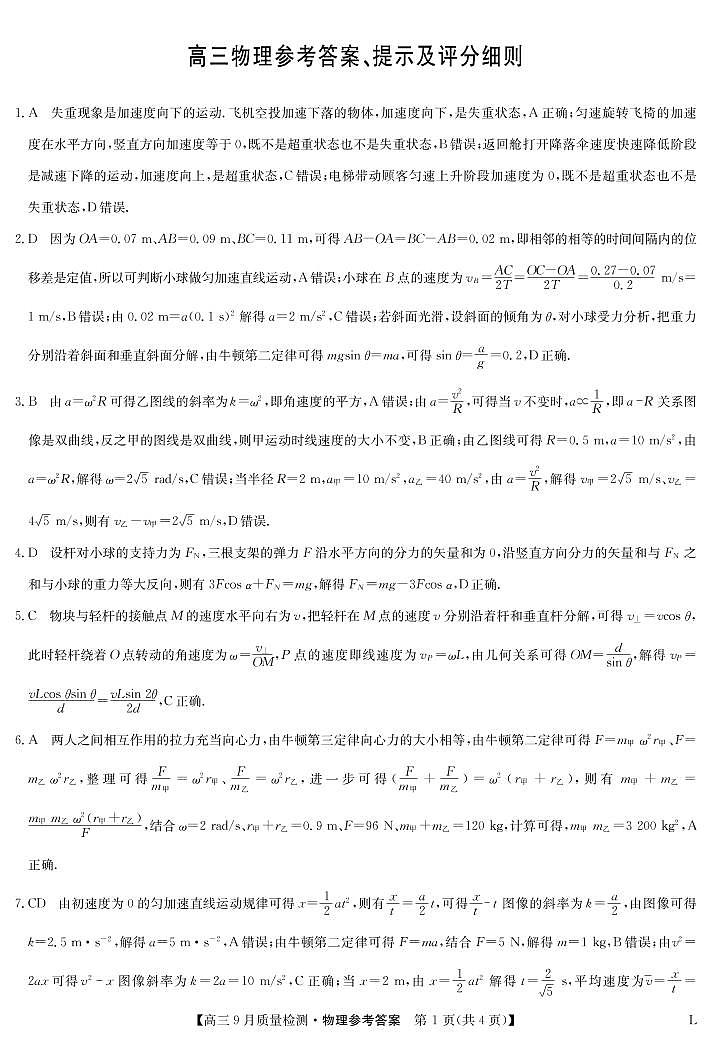 高三物理参考答案、提示及评分细则
1. A 失重现象是加速度向下的运动. 飞机空投加速下落的物体,加速度向下,是失重状态,A 正确;匀速旋转飞椅的加速
度在水平方向,竖直方向加速度等于 0,既不是超重状态也不是失重状态,B 错误;返回舱打开降落伞速度快速降低阶段
是减速下降的运动,加速度向上,是超重状态,C 错误;电梯带动顾客匀速上升阶段加速度为 0,既不是超重状态也不是
失重状态,D 错误.
2. D 因为 OA=0.07 m、AB=0.09 m、BC=0.11 m,可得 AB−OA=BC−AB=0.02 m,即相邻的相等的时间间隔内的位
移差是定值,所以可判断小球做匀加速直线运动,A 错误;小球在 B 点的速度为 v_B=AC/2T=(OC−OA)/2T=(0.27−0.07)/0.2 m/s=
1 m/s,B 错误;由 0.02 m=a(0.1 s)² 解得 a=2 m/s²,C 错误;若斜面光滑,设斜面的倾角为 θ,对小球受力分析,把重力
分别沿着斜面和垂直斜面分解,由牛顿第二定律可得 mgsin θ=ma,可得 sin θ=a/g=0.2,D 正确.
3. B 由 a=ω²R 可得乙图线的斜率为 k=ω²,即角速度的平方,A 错误;由 a=v²/R,可得当 v 不变时,a∝1/R,即 a-R 关系图
像是双曲线,反之甲的图线是双曲线,则甲运动时线速度的大小不变,B 正确;由乙图线可得 R=0.5 m,a=10 m/s²,由
a=ω²R,解得 ω=2√5 rad/s,C 错误;当半径 R=2 m,a甲=10 m/s²,a乙=40 m/s²,由 a=v²/R,解得 v甲=2√5 m/s、v乙=
4√5 m/s,则有 v乙−v甲=2√5 m/s,D 错误.
4. D 设杆对小球的支持力为 F_N,三根支架的弹力 F 沿水平方向的分力的矢量和为 0,沿竖直方向分力的矢量和与 F_N 之
和与小球的重力等大反向,则有 3Fcos α+F_N=mg,解得 F_N=mg−3Fcos α,D 正确.
5. C 物块与轻杆的接触点 M 的速度水平向右为 v,把轻杆在 M 点的速度 v 分别沿着杆和垂直杆分解,可得 v⊥=vcos θ,
此时轻杆绕着 O 点转动的角速度为 ω=v⊥/OM,P 点的速度即线速度为 v_P=ωL,由几何关系可得 OM=d/sin θ,解得 v_P=
vLcos θsin θ/d=vLsin 2θ/2d,C 正确.
6. A 两人之间相互作用的拉力充当向心力,由牛顿第三定律向心力的大小相等,由牛顿第二定律可得 F=m甲 ω²r甲、F=
m乙 ω²r乙,整理可得 F/m甲=ω²r甲、F/m乙=ω²r乙,进一步可得(F/m甲+F/m乙)=ω²(r甲+r乙),则有 m甲+m乙=
m甲 m乙 ω²(r甲+r乙)/F,结合 ω=2 rad/s、r甲+r乙=0.9 m、F=96 N、m甲+m乙=120 kg,计算可得,m甲 m乙=3 200 kg²,A
正确.
7. CD 由初速度为 0 的匀加速直线运动规律可得 x=1/2 at²,则有 x/t=a/2 t,可得 x/t-t 图像的斜率为 k=a/2,由图像可得
k=2.5 m·s⁻²,解得 a=5 m·s⁻²,A 错误;由牛顿第二定律可得 F=ma,结合 F=5 N,解得 m=1 kg,B 错误;由 v²=
2ax 可得 v²-x 图像斜率为 k=2a=10 m/s²,C 正确;当 x=2 m,由 x=1/2 at² 解得 t=2/√5 s,平均速度为 v̄=x/t=
【高三 9 月质量检测·物理参考答案 第 1 页(共 4 页)】 L